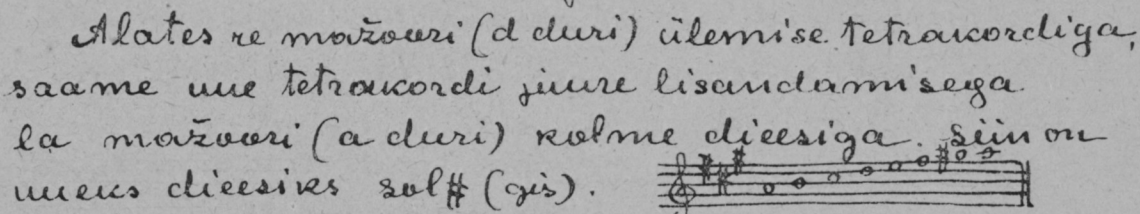 Alates re mažoori (d duri) ülemise tetrakordiga,
saame uue tetrakordi juure lisandamisega
la mažoori (a duri) kolme dieesiga. Siin on
uueks dieesiks sol# (gis).